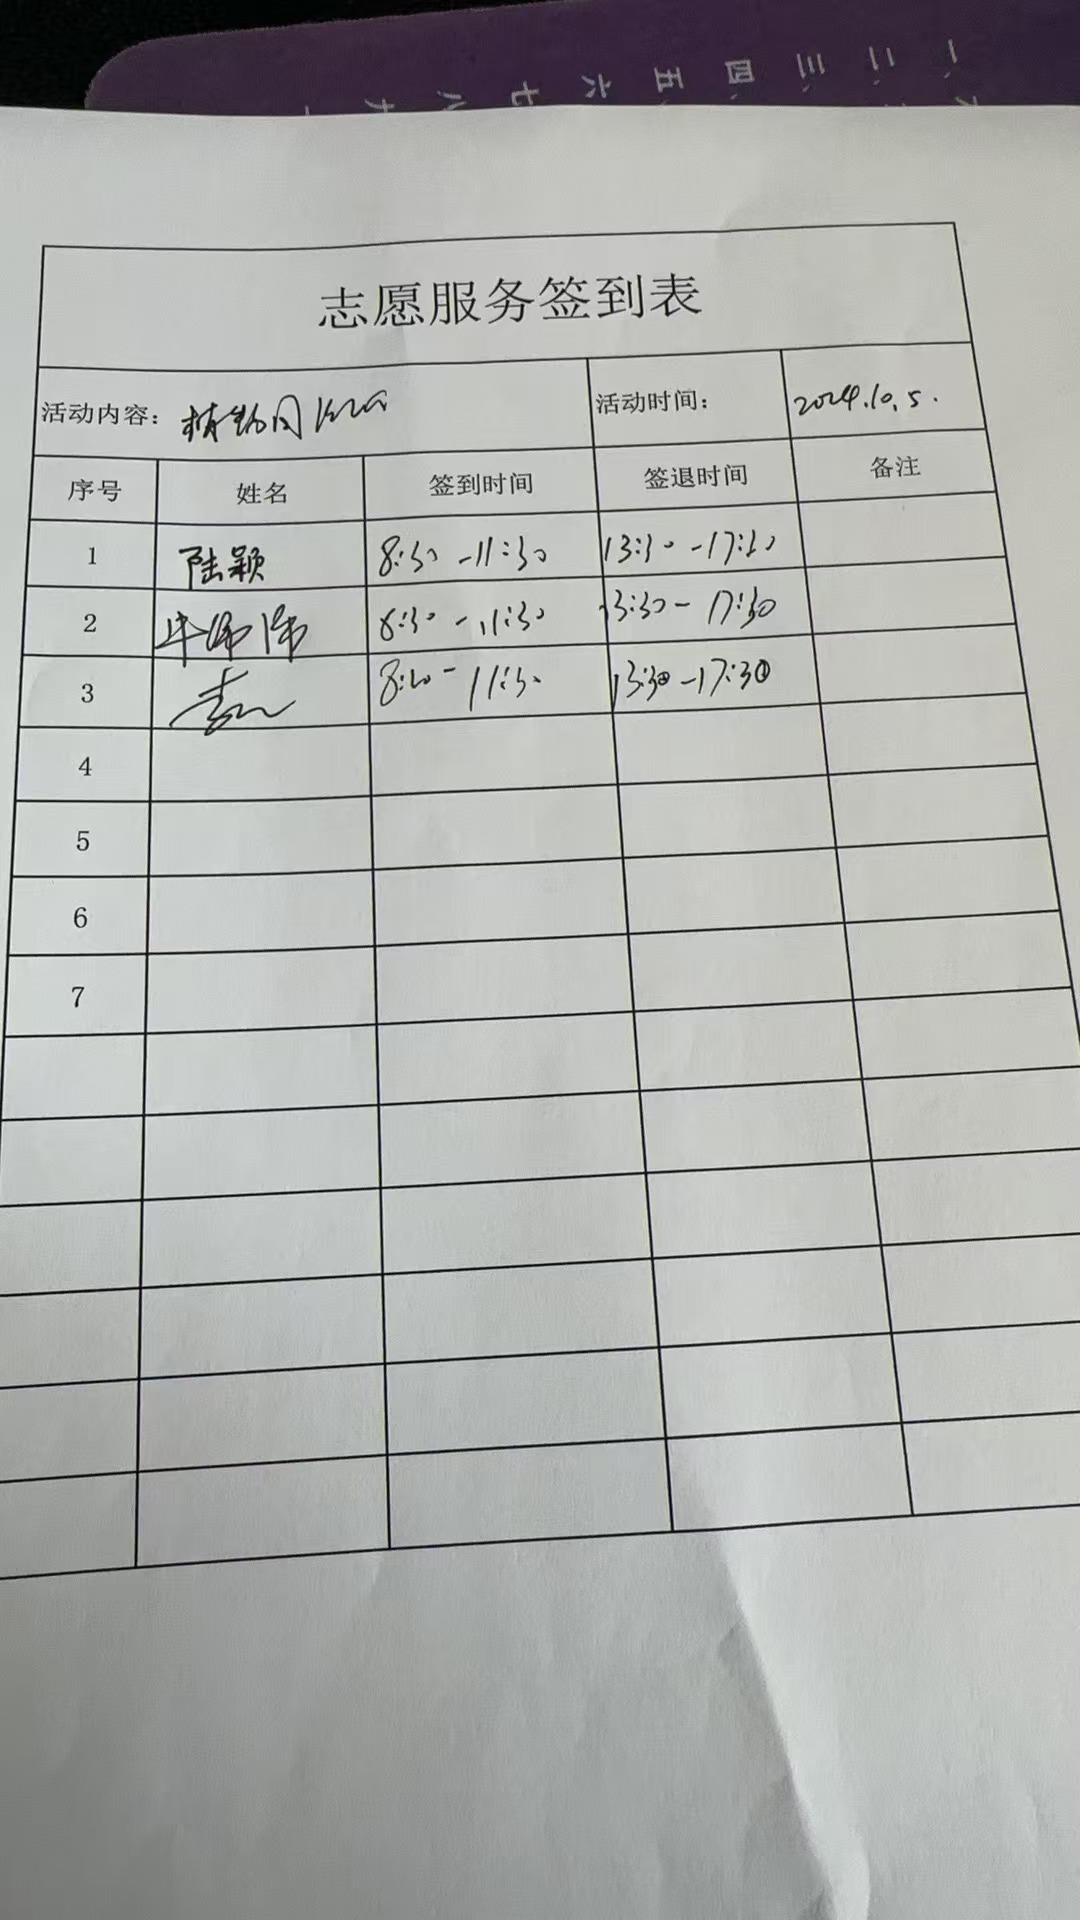 一、二、三、四、五、六、七、八、九、
志愿服务签到表
活动内容： 活动时间： 2024.10.5.
序号 姓名 签到时间 签退时间 备注
1 陆颖 8:30-11:30 13:30-17:30
2 8:30-11:30 13:30-17:30
3 11:30 13:30-17:30
4
5
6
7